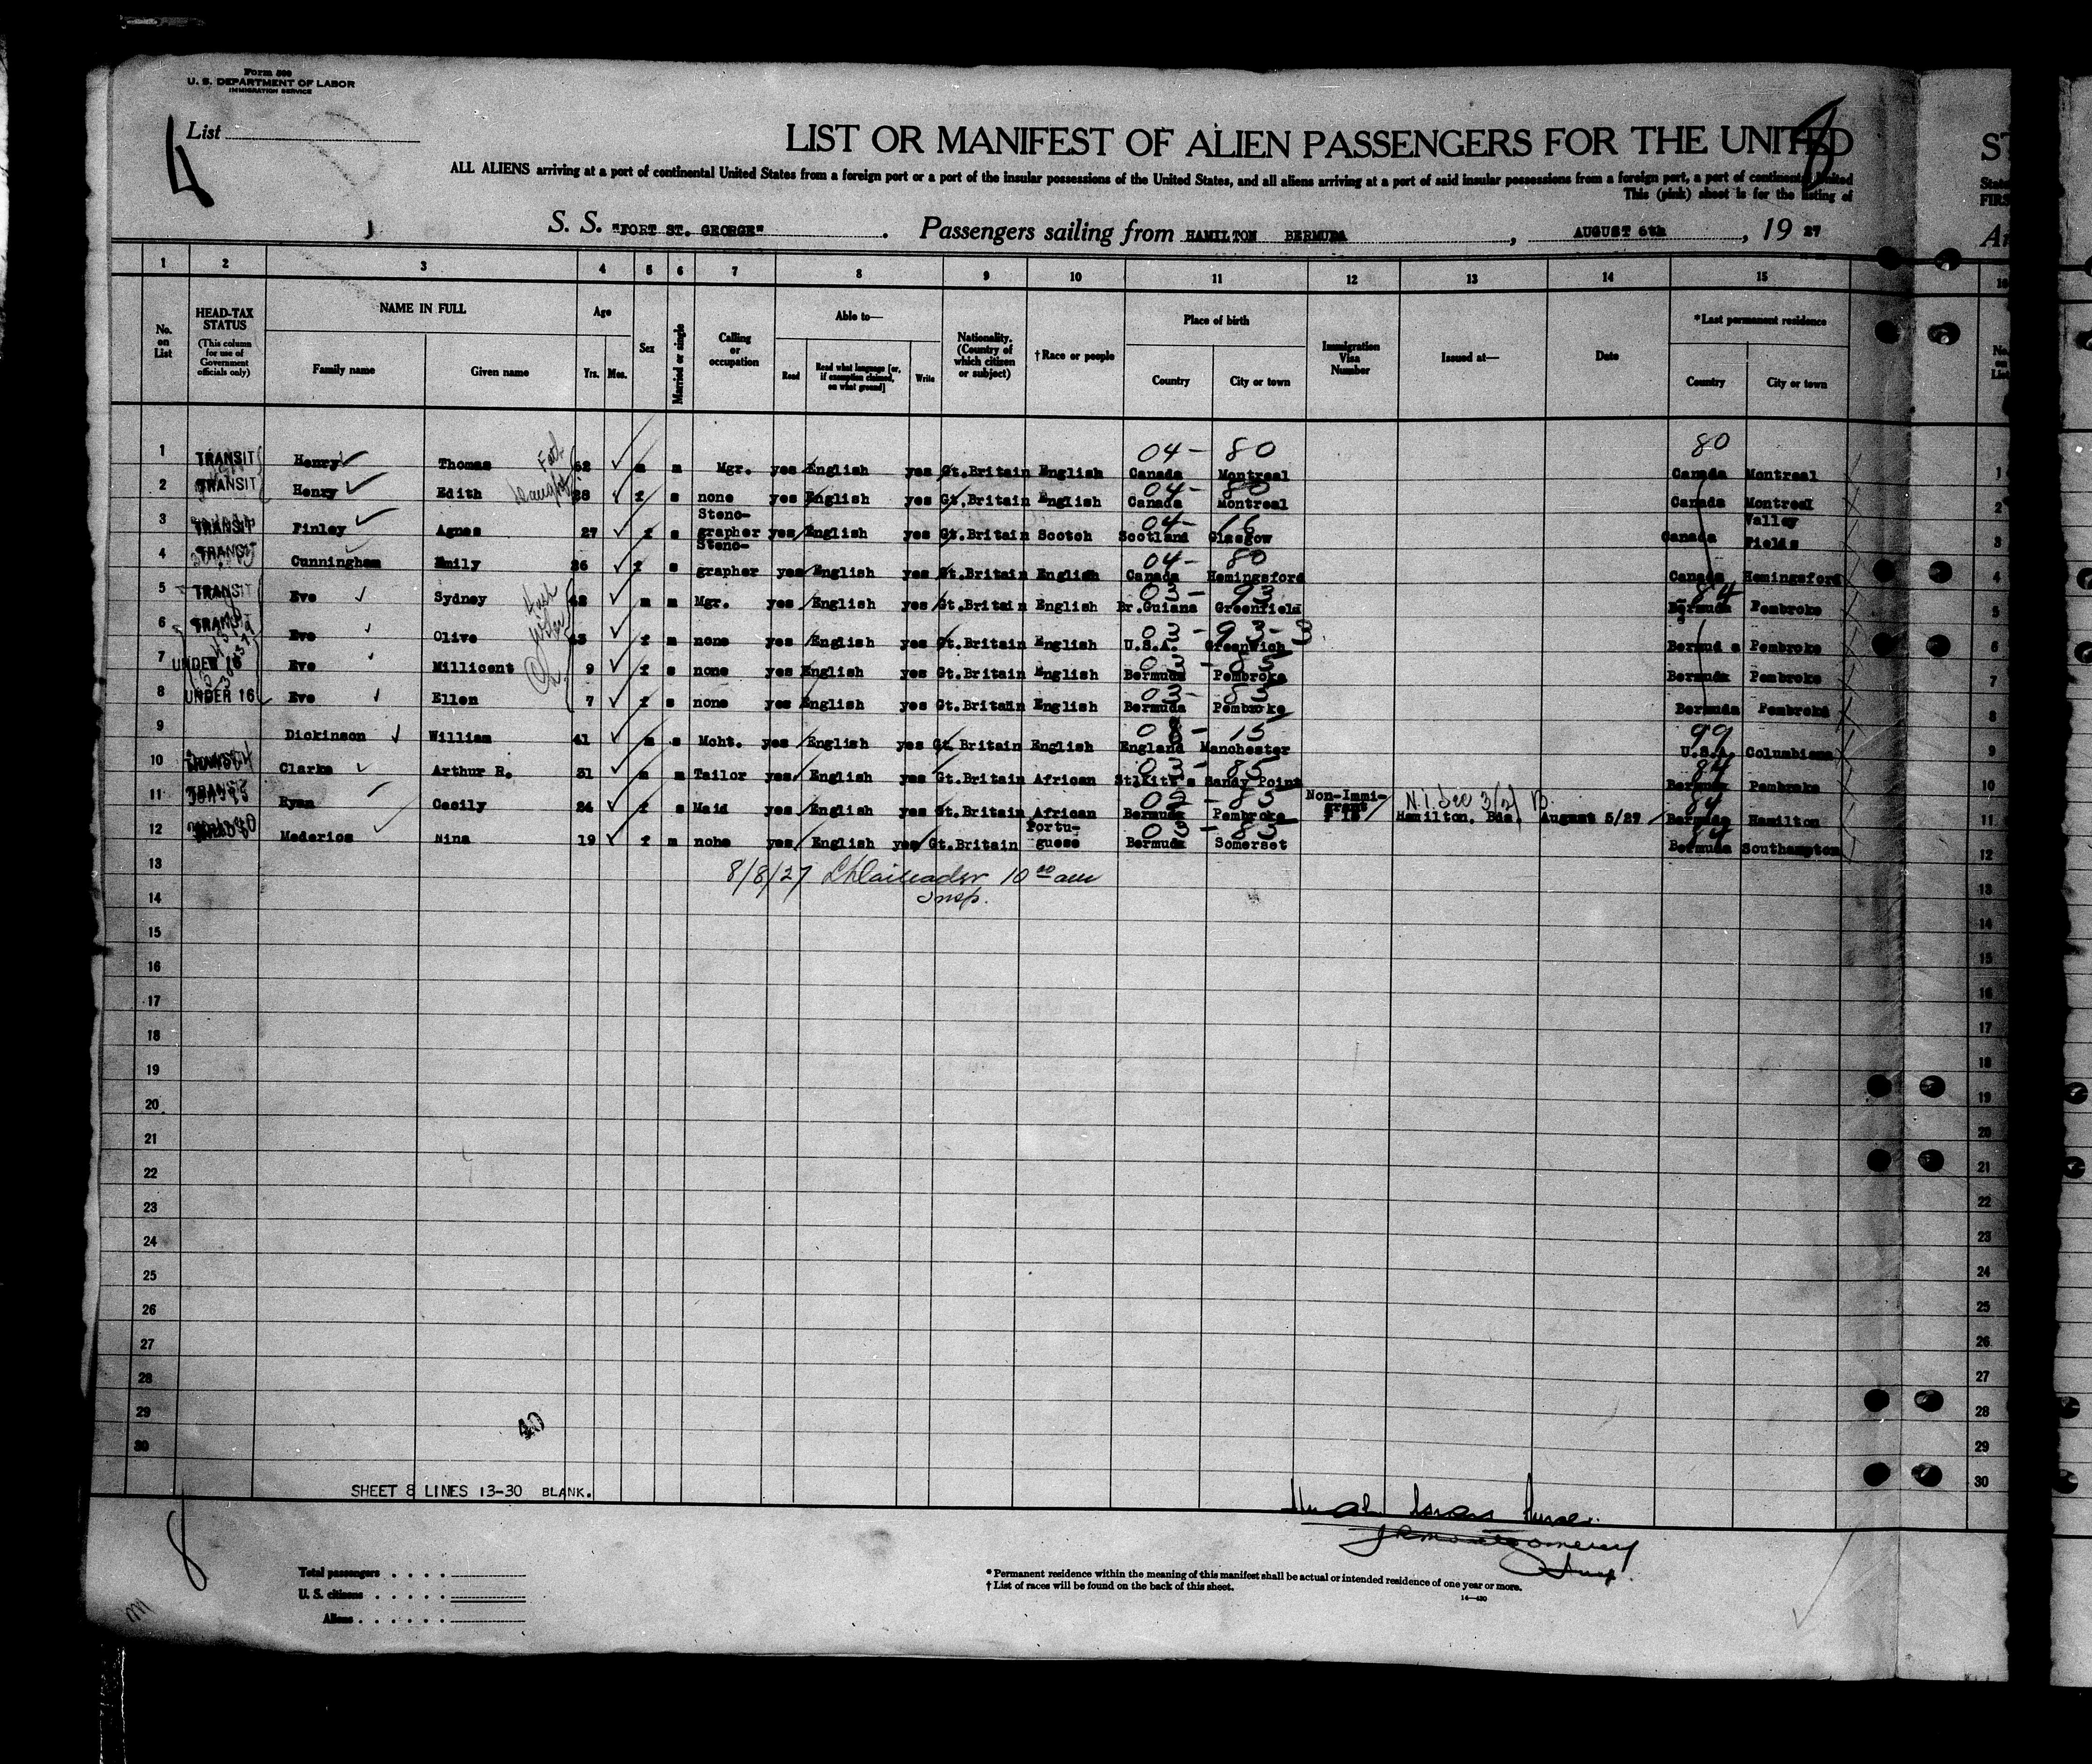 Form 500
U. S. DEPARTMENT OF LABOR
IMMIGRATION SERVICE
List
4
LIST OR MANIFEST OF ALIEN PASSENGERS FOR THE UNITED
ALL ALIENS arriving at a port of continental United States from a foreign port or a port of the insular possessions of the United States, and all aliens arriving at a port of said insular possessions from a foreign port, a port of continental United
This (pink) sheet is for the listing of
S. S. "FORT ST. GEORGE". Passengers sailing from HAMILTON BERMUDA, AUGUST 6th, 19 27
1 2 3 4 5 6 7 8 9 10 11 12 13 14 15
No. on List
HEAD-TAX STATUS (This column for use of Government officials only)
NAME IN FULL Family name Given name
Age Yrs. Mos.
Sex
Married or single
Calling or occupation
Able to— Read Read what language [or, if exemption claimed, on what ground] Write
Nationality. (Country of which citizen or subject)
† Race or people
Place of birth Country City or town
Immigration Visa Number
Issued at—
Date
* Last permanent residence Country City or town
04 - 80 80
1 TRANSIT Henry Thomas m m Mgr. yes English yes Gt.Britain English Canada Montreal Canada Montreal 1
04- 80
2 TRANSIT Henry Edith f s none yes English yes Gt.Britain English Canada Montreal Canada Montreal 2
04- 16
3 TRANSIT Finley Agnes 27 f s Steno-grapher yes English yes Gt.Britain Scotch Scotland Glasgow Canada Valley Fields 3
04- 80
4 TRANSIT Cunningham Emily 26 f s Steno-grapher yes English yes Gt.Britain English Canada Hemingsford Canada Hemingsford 4
03- 93 84
5 TRANSIT Eve Sydney m m Mgr. yes English yes Gt.Britain English Br.Guiana Greenfield Bermuda Pembroke 5
03 - 93- 3
6 TRANSIT Eve Olive f m none yes English yes Gt.Britain English U.S.A. Greenwich Bermuda Pembroke 6
03 - 85
7 UNDER 16 Eve Millicent 9 f s none yes English yes Gt.Britain English Bermuda Pembroke Bermuda Pembroke 7
03- 85
8 UNDER 16 Eve Ellen 7 f s none yes English yes Gt.Britain English Bermuda Pembroke Bermuda Pembroke 8
15 99
9 Dickinson William 41 m s Mcht. yes English yes Gt.Britain English England Manchester U.S.A. Columbiana 9
03 - 85 84
10 Clarke Arthur R. 31 m m Tailor yes English yes Gt.Britain African St.Kitt's Sandy Point Bermuda Pembroke 10
85 84
11 Ryan Cecily 24 f s Maid yes English yes Gt.Britain African Bermuda Pembroke Non-Immi-grant Hamilton, Bda. August 5/27 Bermuda Hamilton 11
03 - 85 84
12 Mederios Nina 19 f m none yes English yes Gt.Britain Portu-guese Bermuda Somerset Bermuda Southampton 12
13 8/8/27 10 00 am 13
Insp.
14 14
15 15
16 16
17 17
18 18
19 19
20 20
21 21
22 22
23 23
24 24
25 25
26 26
27 27
28 28
29 29
30 30
40
SHEET 8 LINES 13-30 BLANK.
8
Total passengers
U. S. citizens
Aliens
* Permanent residence within the meaning of this manifest shall be actual or intended residence of one year or more.
† List of races will be found on the back of this sheet.
14—430